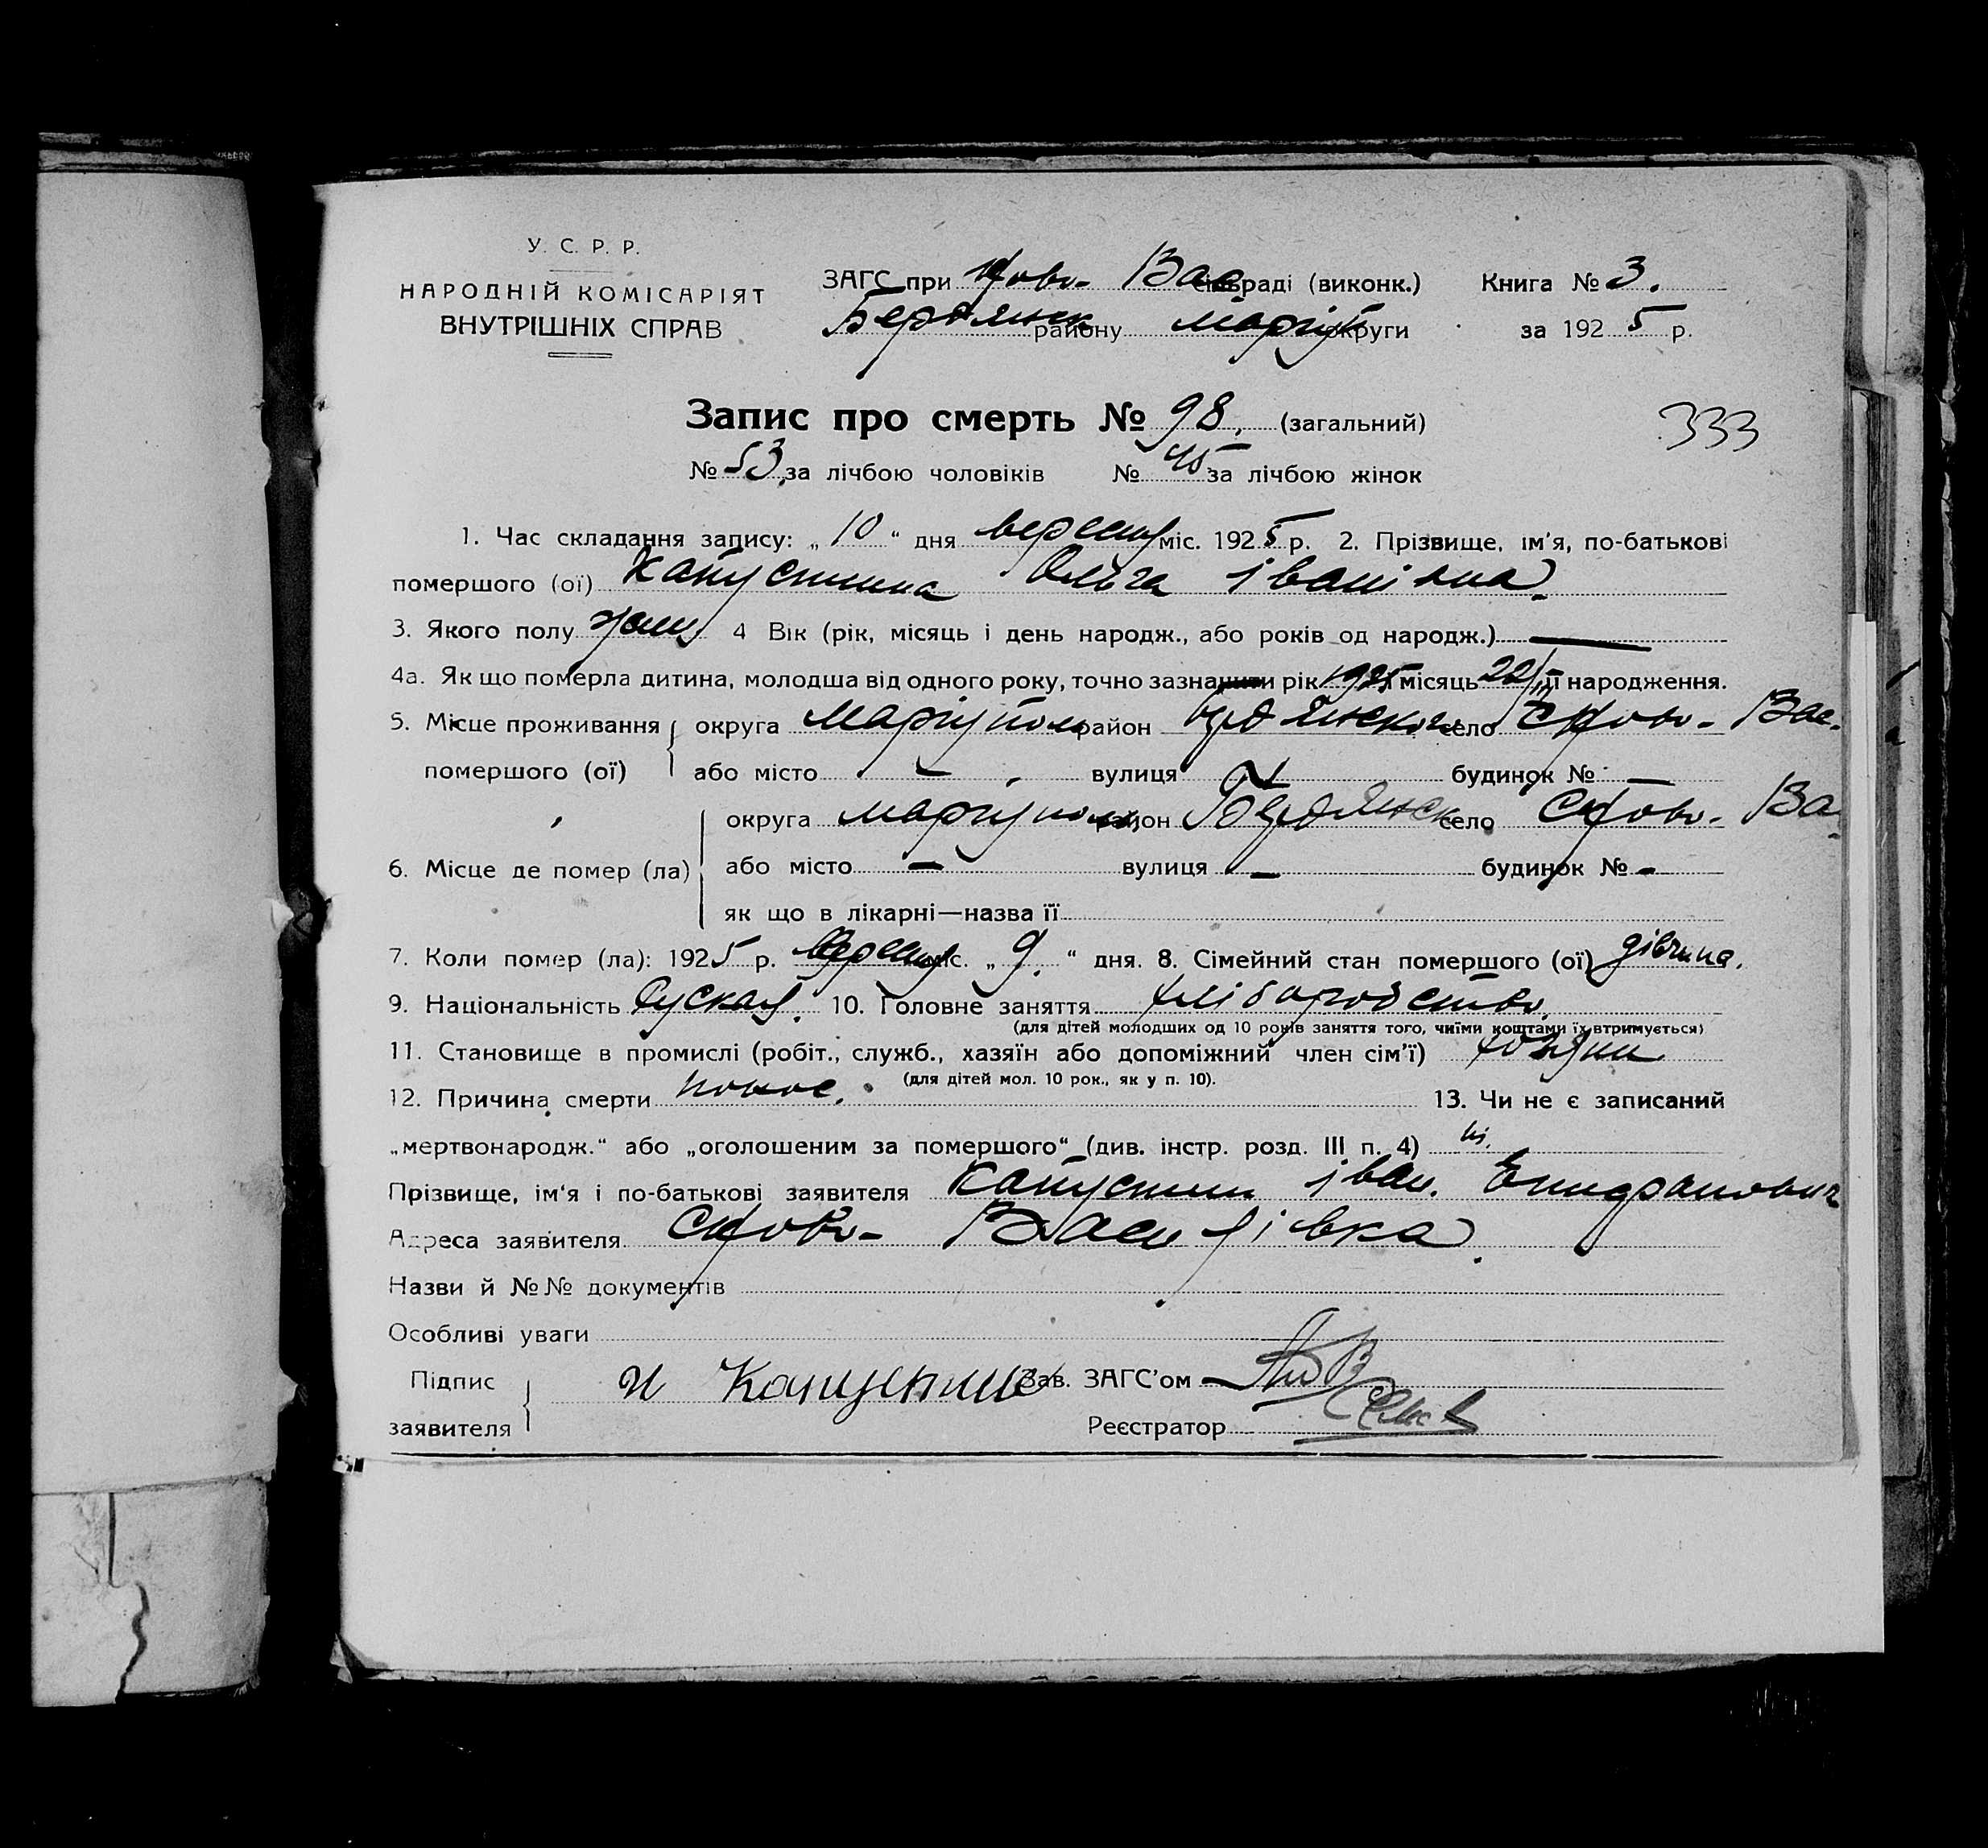 У. С. Р. Р.
НАРОДНІЙ КОМІСАРІЯТ
ВНУТРІШНІХ СПРАВ
ЗАГС при Ново- Вас сільраді (виконк.) Книга № 3.
Бердянск району Маріуп округи за 1925 р.
Запис про смерть № 98, (загальний)
333
№ 53 за лічбою чоловіків № 45 за лічбою жінок
1. Час складання запису: „10“ дня вересня міс. 1925 р. 2. Прізвище, ім'я, по-батькові
помершого (ої) Капустина Ольга Іванівна
3. Якого полу жін 4 Вік (рік, місяць і день народж., або років од народж.) —
4а. Як що померла дитина, молодша від одного року, точно зазначити рік 1925 місяць 22/ її народження.
5. Місце проживання округа Маріуполь район Бердянског село Ново- Вас.
помершого (ої) або місто — вулиця — будинок № —
6. Місце де помер (ла) округа Маріуполь район Бердянск село Ново- Ва
або місто — вулиця — будинок № —
як що в лікарні—назва її
7. Коли помер (ла): 1925 р. вересня міс. „9.“ дня. 8. Сімейний стан помершого (ої) дівчина.
9. Національність Руская. 10. Головне заняття хліборобство.
(для дітей молодших од 10 років заняття того, чиїми коштами їх втримується)
11. Становище в промислі (робіт., служб., хазяїн або допоміжний член сім'ї) хозяин
(для дітей мол. 10 рок., як у п. 10).
12. Причина смерти понос. 13. Чи не є записаний
„мертвонародж.“ або „оголошеним за помершого“ (див. інстр. розд. III п. 4) ні.
Прізвище, ім'я і по-батькові заявителя Капустин Іван.
Адреса заявителя Ново- Василівка.
Назви й №№ документів
Особливі уваги
Підпис заявителя И Капустин Зав. ЗАГС'ом
Реєстратор